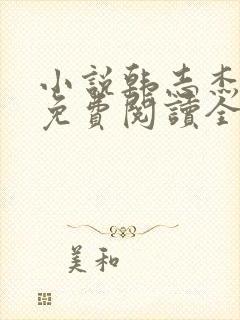 小说韩志杰
免費閱讀全
美和